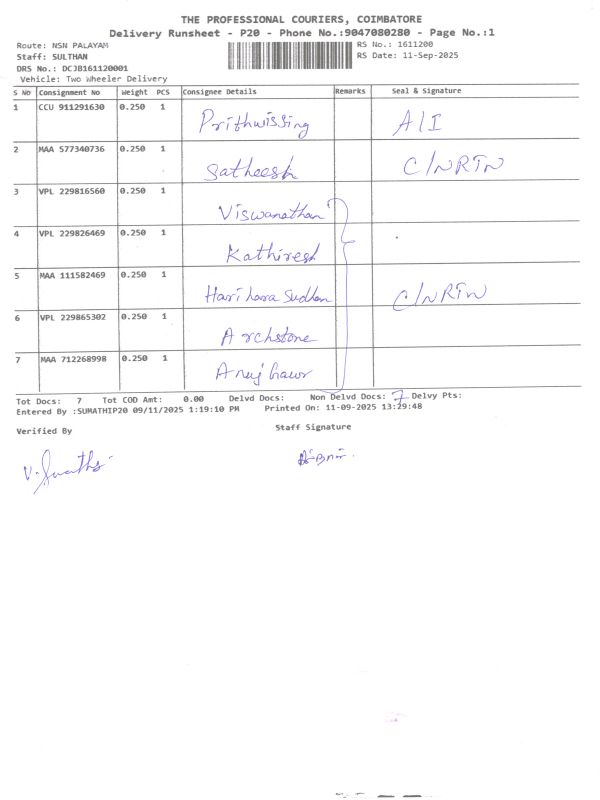 THE PROFESSIONAL COURIERS, COIMBATORE
Delivery Runsheet - P20 - Phone No.:9047080280 - Page No.:1
Route: NSN PALAYAM RS No.: 1611200
Staff: SULTHAN RS Date: 11-Sep-2025
DRS No.: DCJB161120001
Vehicle: Two Wheeler Delivery
S No Consignment No Weight PCS Consignee Details Remarks Seal & Signature
1 CCU 911291630 0.250 1 Prithwissing A/I
2 MAA 577340736 0.250 1 Satheesh C/NRTN
3 VPL 229816560 0.250 1 Viswanathan
4 VPL 229826469 0.250 1 Kathiresh
5 MAA 111582469 0.250 1 Hari hara Sudhan C/NRTN
6 VPL 229865302 0.250 1 Archstone
7 MAA 712268998 0.250 1 Anuj
Tot Docs: 7 Tot COD Amt: 0.00 Delvd Docs: Non Delvd Docs: 7 Delvy Pts:
Entered By :SUMATHIP20 09/11/2025 1:19:10 PM Printed On: 11-09-2025 13:29:48
Verified By Staff Signature